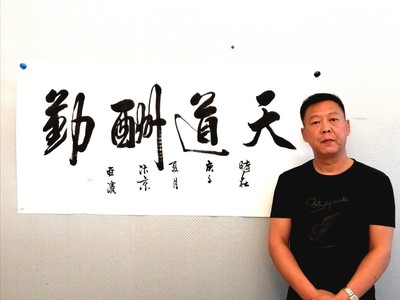 天道酬勤
時在
庚子
夏月
汴京
亚